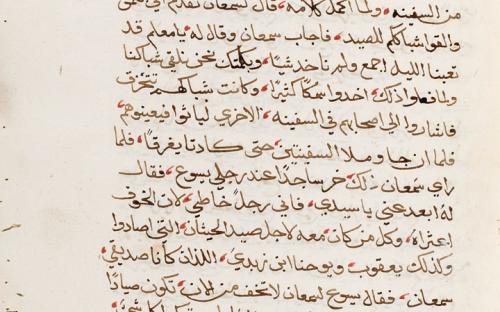 من السفينه ولما اكمل كلامه قال لسمعان تقدم الي
والقوا شباككم للصيد فاجاب سمعان وقال له يا معلم قد
تعبنا الليل اجمع ولم ناخد شيًا وبكلمتك نحن نلقي شباكنا
ولما فعلوا ذلك اخدوا سمكًا كثيرًا وكانت شباكهم تتخرق
فاشاروا الي اصحابهم في السفينه الاخري لياتوا فيعينوهم
فلما ان جاو ملا السفينتين حتى كادتا يغرقا فلما
راي سمعان ذلك خر ساجدًا عند رجلي يسوع فقال
له ابعد عني يا سيدي فاني رجل خاطي لان الخوف
اعتراه وكل من كان معه لاجل صيد الحيتان التي اصادوا
وكذلك يعقوب ويوحنا ابني زبدي اللذان كانا صديقي
سمعان فقال يسوع لسمعان لا تخف من الان تكون صيادًا